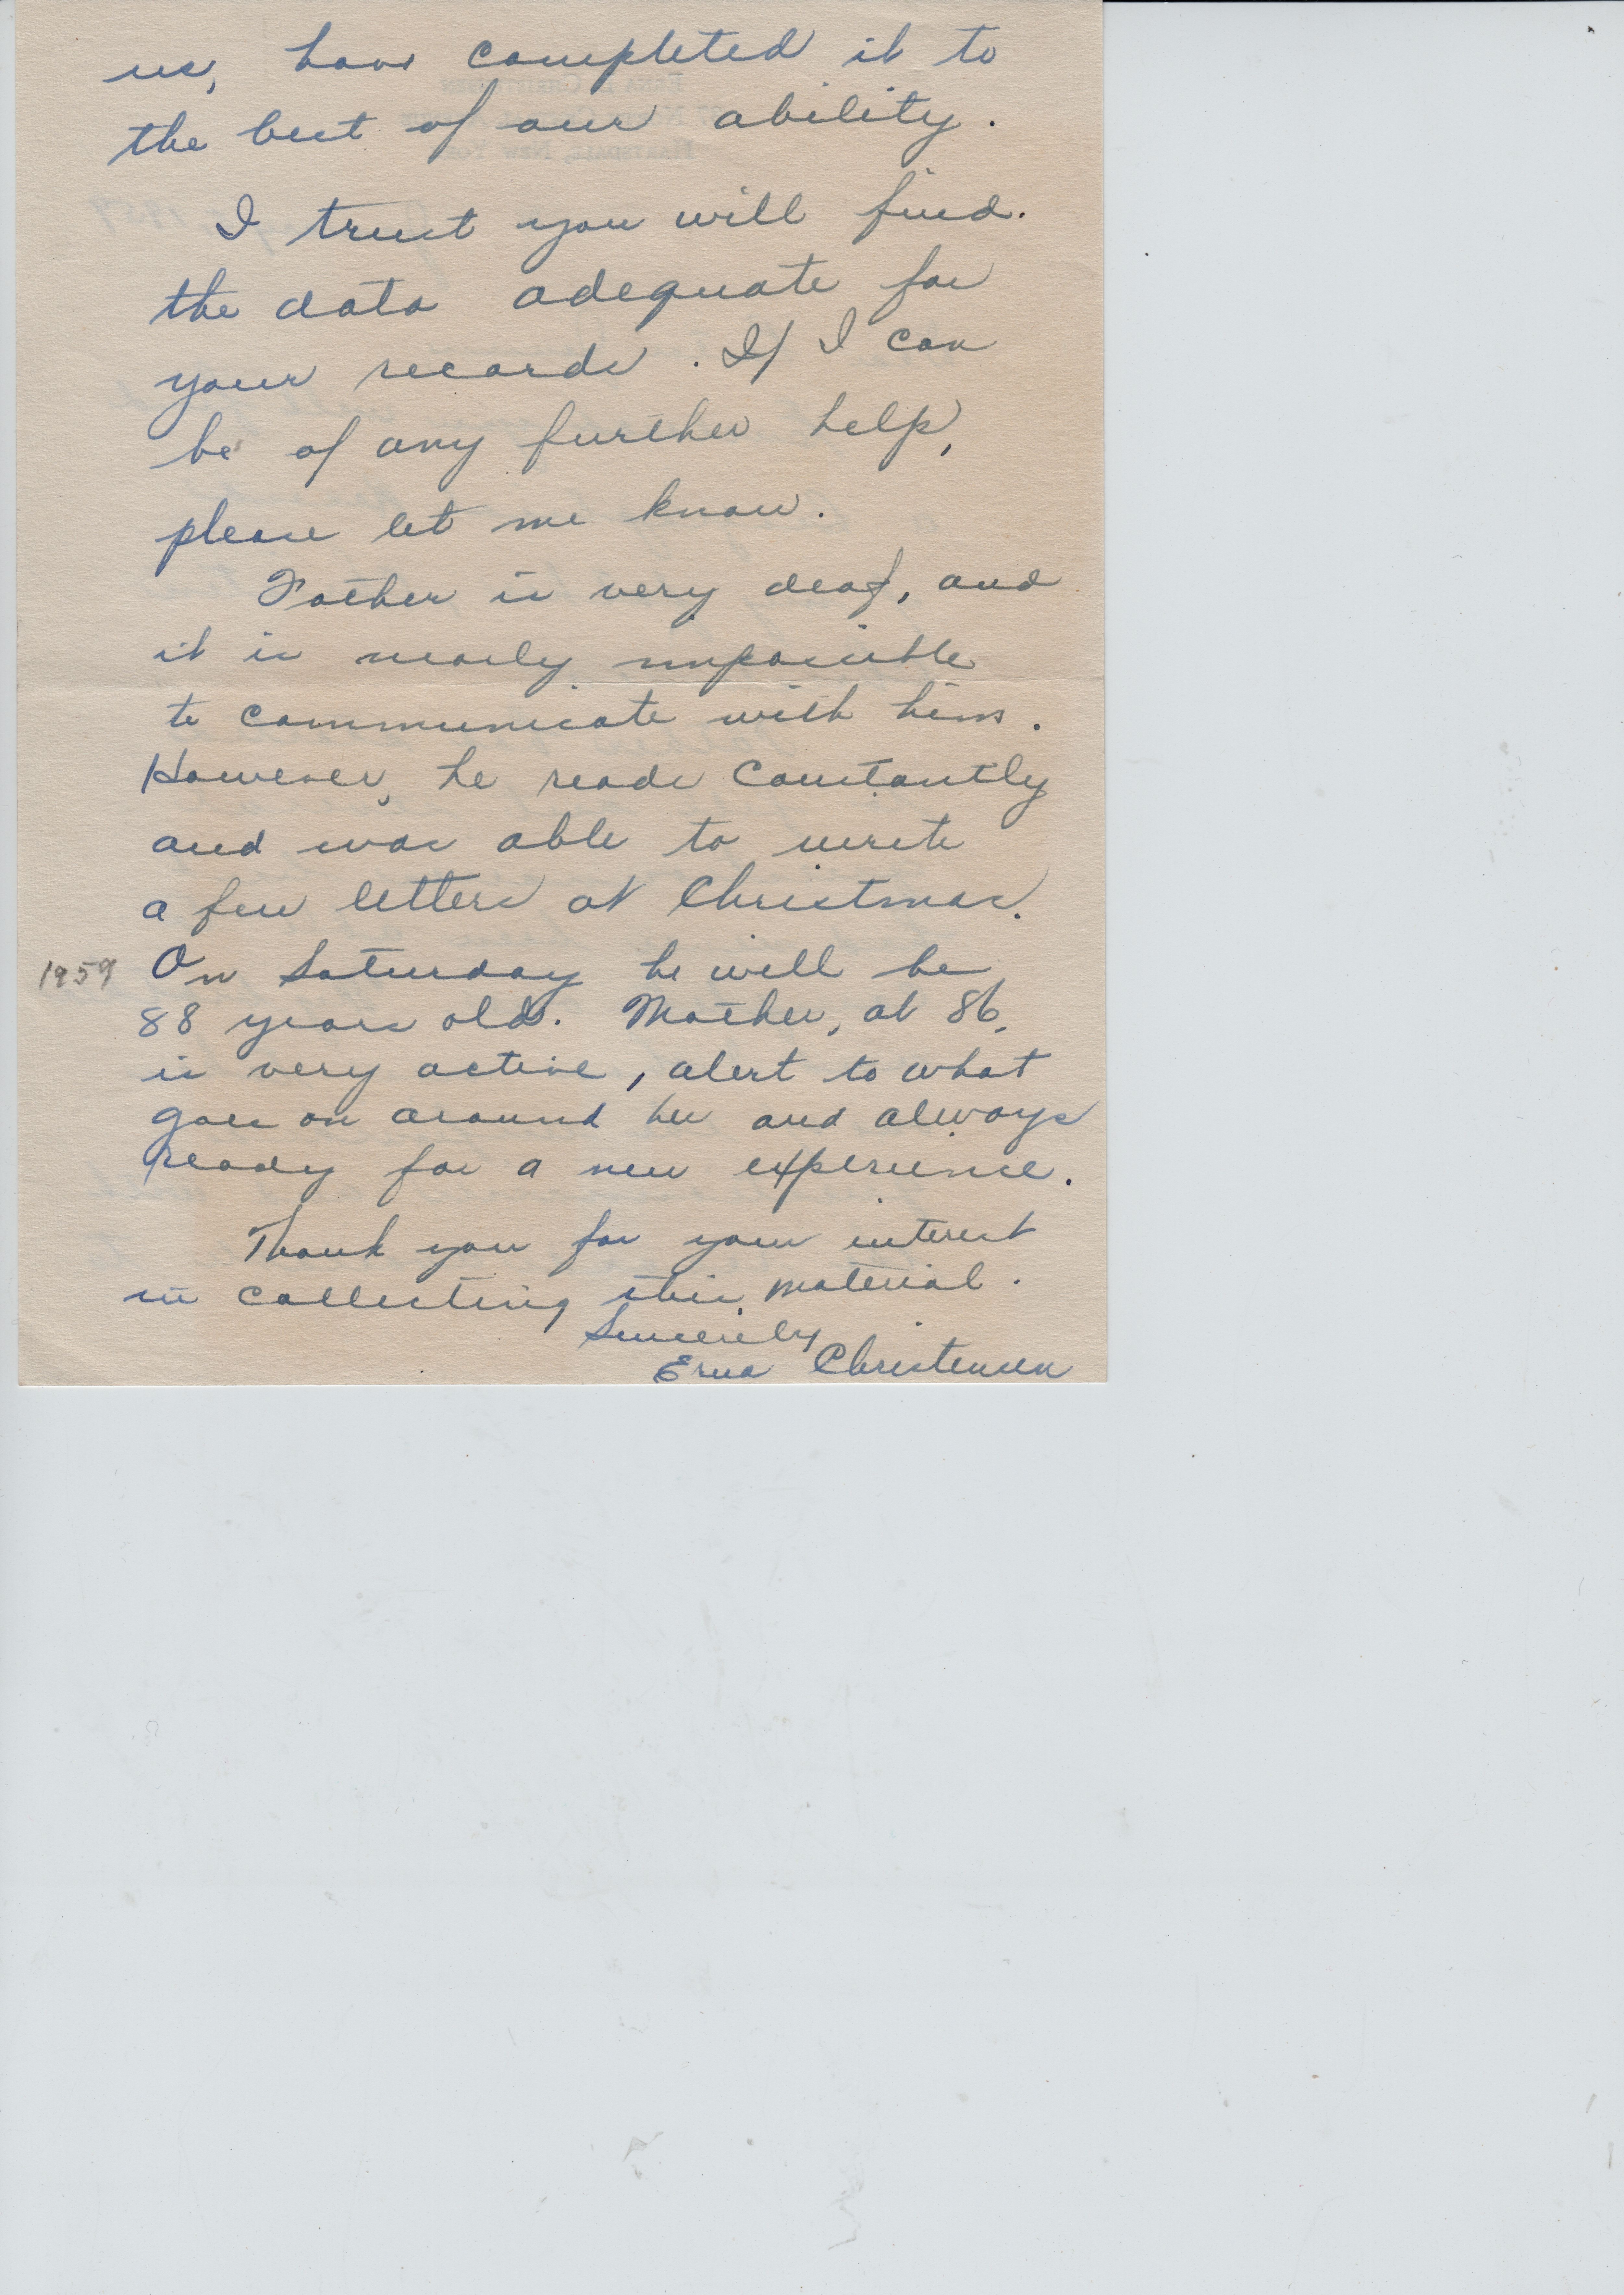 us, have completed it to
the best of our ability.
I trust you will find
the data adequate for
your records. If I can
be of any further help,
please let me know.
Father is very deaf, and
it is nearly impossible
to communicate with him.
However, he reads constantly
and was able to write
a few letters at Christmas.
1959 On Saturday he will be
88 years old. Mother, at 86,
is very active, alert to what
goes on around her and always
ready for a new experience.
Thank you for your interest
in collecting this material.
Sincerely
Erna Christensen